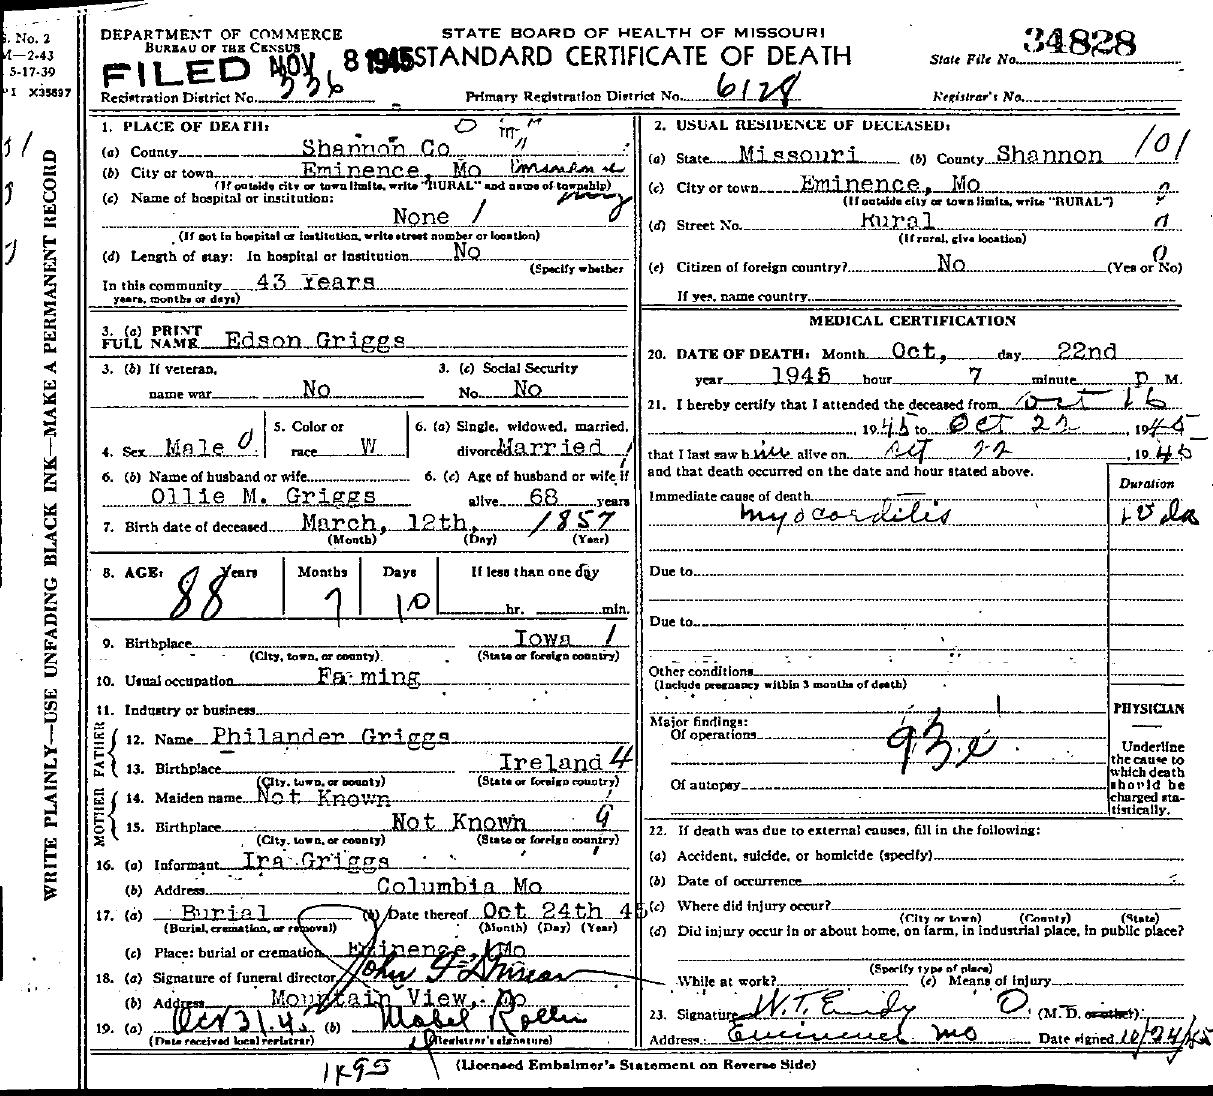 S. No. 2
M—2-43
5-17-39
PI X35697
WRITE PLAINLY—USE UNFADING BLACK INK—MAKE A PERMANENT RECORD
DEPARTMENT OF COMMERCE
BUREAU OF THE CENSUS
FILED NOV 8 1945
STATE BOARD OF HEALTH OF MISSOURI
STANDARD CERTIFICATE OF DEATH
State File No. 34828
Registration District No. 336
Primary Registration District No. 6128
Registrar's No.
1. PLACE OF DEATH:
(a) County Shannon Co
(b) City or town Eminence, Mo
(If outside city or town limits, write "RURAL" and name of township)
(c) Name of hospital or institution:
None /
(If not in hospital or institution, write street number or location)
(d) Length of stay: In hospital or institution No
(Specify whether
In this community 43 Years
years, months or days)
2. USUAL RESIDENCE OF DECEASED: 101
(a) State Missouri (b) County Shannon
(c) City or town Eminence, Mo
(If outside city or town limits, write "RURAL")
(d) Street No. Rural
(If rural, give location)
(e) Citizen of foreign country? No (Yes or No)
If yes, name country
3. (a) PRINT FULL NAME Edson Griggs
3. (b) If veteran, name war No
3. (c) Social Security No. No
4. Sex Male
5. Color or race W
6. (a) Single, widowed, married, divorced Married
6. (b) Name of husband or wife
Ollie M. Griggs
6. (c) Age of husband or wife if alive 68 years
7. Birth date of deceased March, 12th, 1857
(Month) (Day) (Year)
8. AGE: Years Months Days If less than one day
88 7 10 hr. min.
9. Birthplace Iowa 1
(City, town, or county) (State or foreign country)
10. Usual occupation Farming
11. Industry or business
FATHER
12. Name Philander Griggs
13. Birthplace Ireland 4
(City, town, or county) (State or foreign country)
MOTHER
14. Maiden name Not Known
15. Birthplace Not Known 9
(City, town, or county) (State or foreign country)
16. (a) Informant Ira Griggs
(b) Address Columbia Mo
17. (a) Burial (b) Date thereof Oct 24th 45
(Burial, cremation, or removal) (Month) (Day) (Year)
(c) Place: burial or cremation Eminence, Mo
18. (a) Signature of funeral director John F
(b) Address Mountain View, Mo
19. (a) Oct 31, 45 (b) Mabel Rollin
(Date received local registrar) (Registrar's signature)
MEDICAL CERTIFICATION
20. DATE OF DEATH: Month Oct, day 22nd
year 1945 hour 7 minute P M.
21. I hereby certify that I attended the deceased from Oct 16
1945 to Oct 22, 1945
that I last saw him alive on Oct 22, 1945
and that death occurred on the date and hour stated above.
Duration
Immediate cause of death
Myocorditis
Due to
Due to
Other conditions
(Include pregnancy within 3 months of death)
Major findings:
Of operations
93e
Of autopsy
PHYSICIAN
Underline the cause to which death should be charged statistically.
22. If death was due to external causes, fill in the following:
(a) Accident, suicide, or homicide (specify)
(b) Date of occurrence
(c) Where did injury occur?
(City or town) (County) (State)
(d) Did injury occur in or about home, on farm, in industrial place, in public place?
(Specify type of place)
While at work? (e) Means of injury
23. Signature W.T. Eudy (M. D. or other)
Address: Eminence Mo Date signed 10/24/45
1495
(Licensed Embalmer's Statement on Reverse Side)